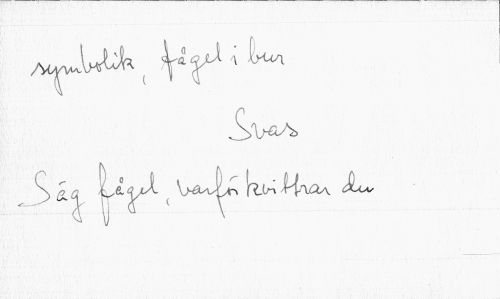 symbolik, fågel i bur
Svas
Säg fågel, varför kvittrar du